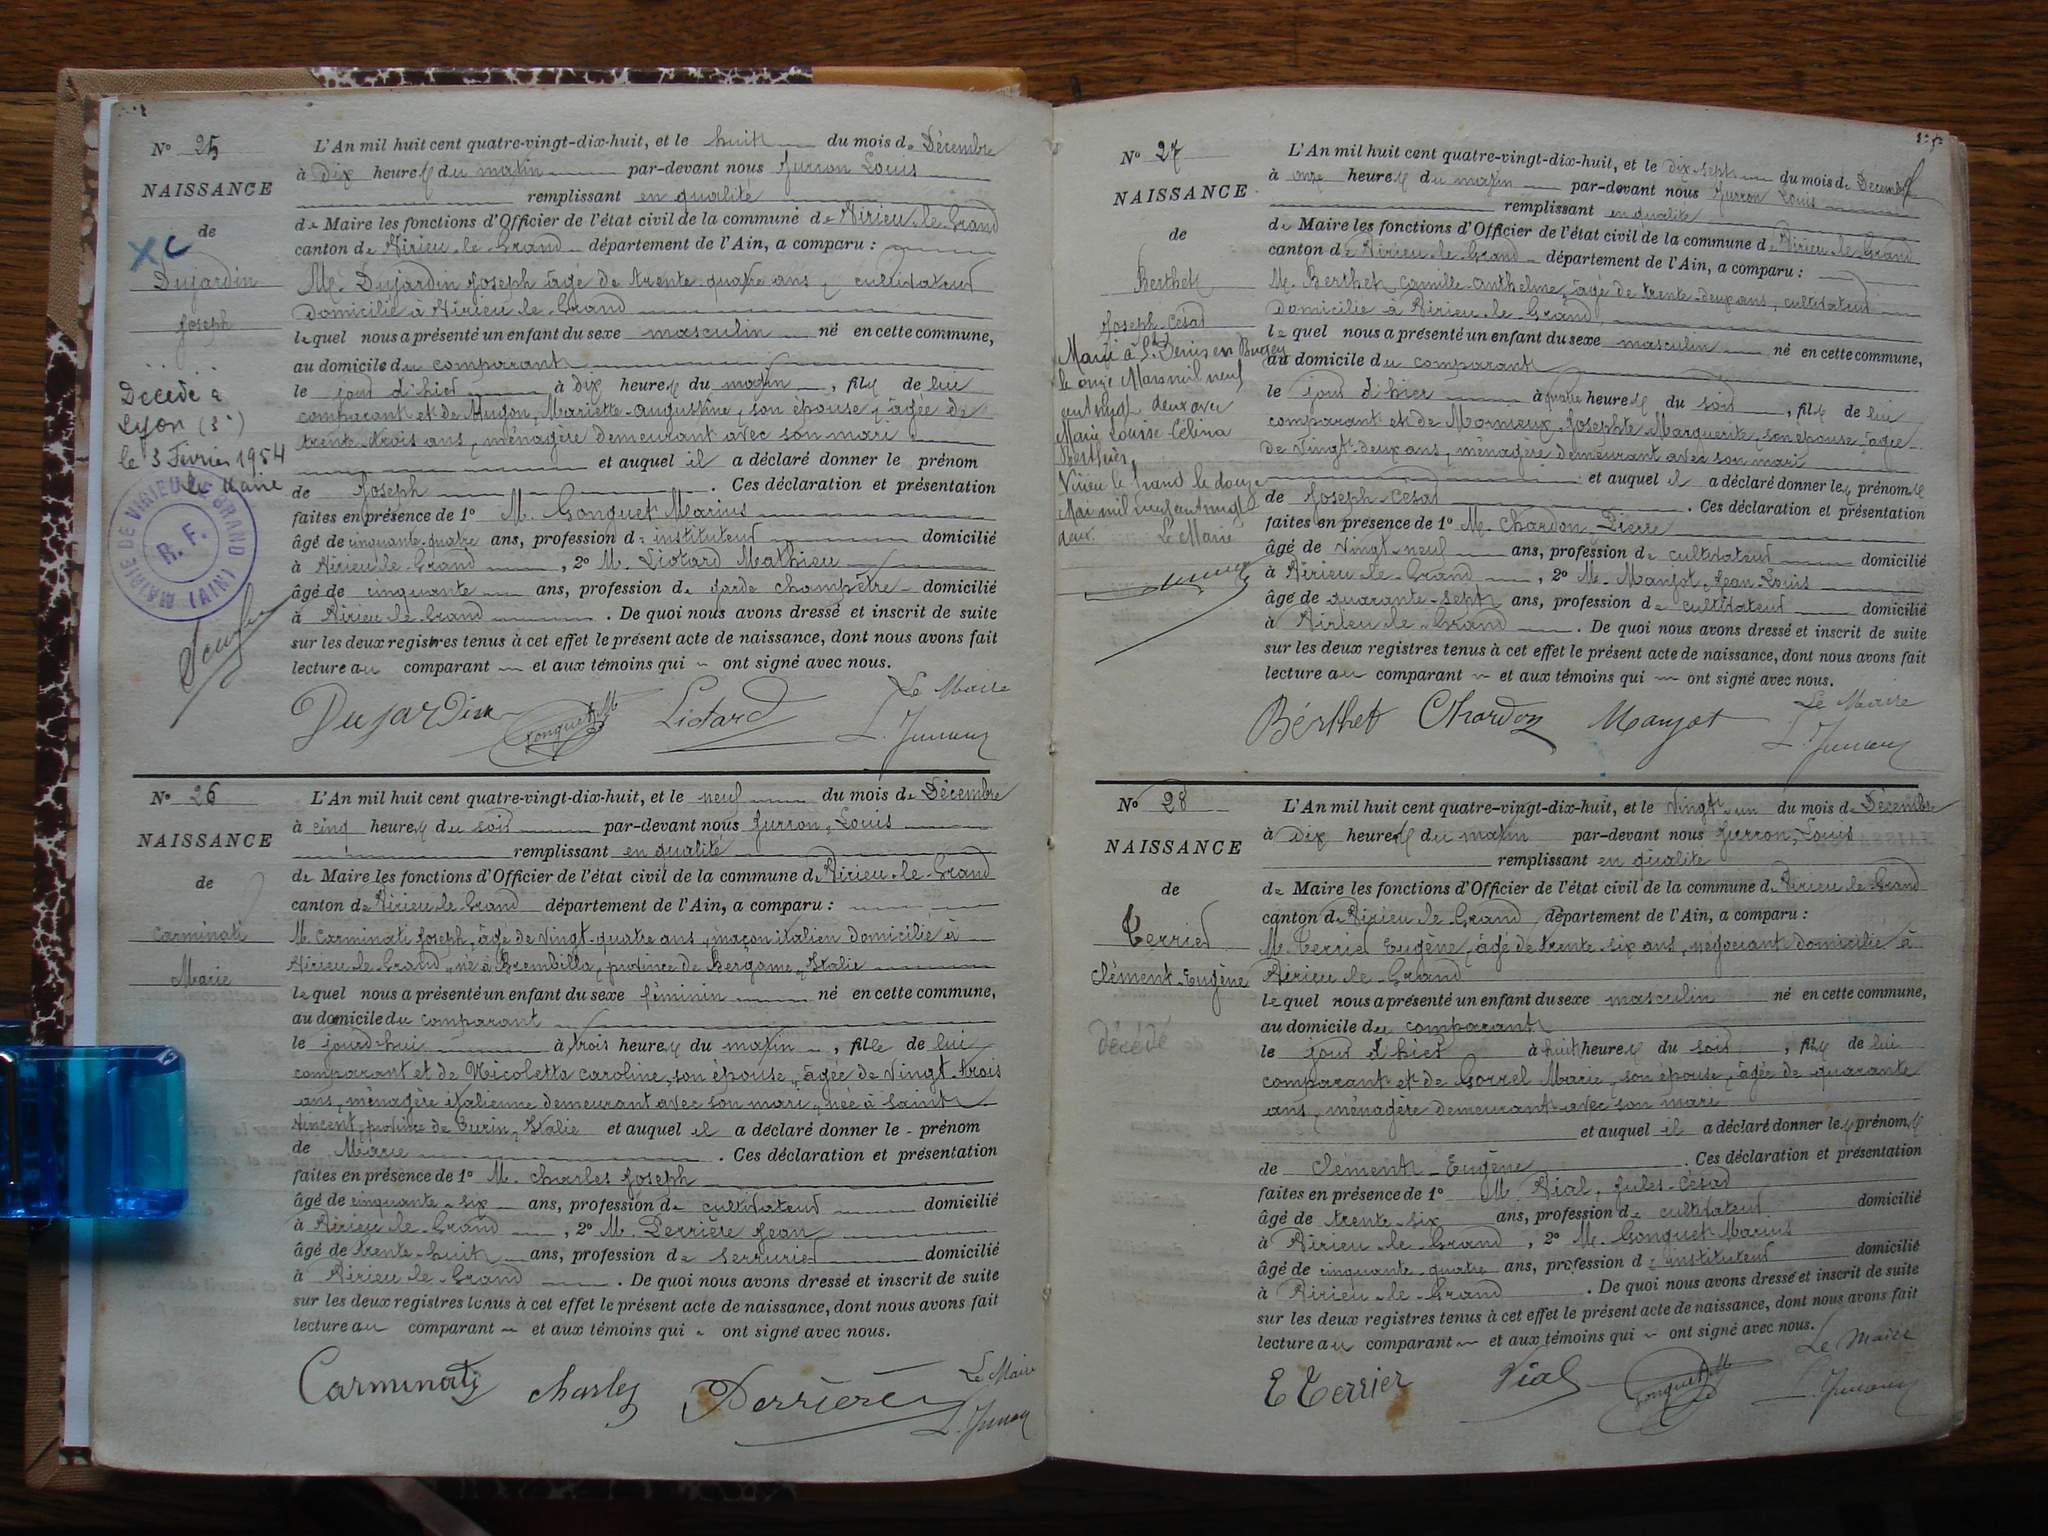 N° 25
NAISSANCE
de
XC
Dujardin
Joseph
Décédé à
Lyon (3e)
le 3 Février 1954
le Maire
MAIRIE DE VIRIEU-LE-GRAND (AIN)
R. F.
L'An mil huit cent quatre-vingt-dix-huit, et le huit du mois de Décembre
à dix heures du matin par-devant nous Jurron Louis
remplissant en qualité
de Maire les fonctions d'Officier de l'état civil de la commune de Virieu-le-Grand
canton de Virieu-le-Grand département de l'Ain, a comparu :
M. Dujardin Joseph âgé de trente quatre ans, cultivateur
domicilié à Virieu-le-Grand
lequel nous a présenté un enfant du sexe masculin né en cette commune,
au domicile du comparant
le jour d'hier à dix heures du matin, fils de lui
comparant et de Hugon, Mariette-Augustine, son épouse, âgée de
trente-trois ans, ménagère demeurant avec son mari
et auquel il a déclaré donner le prénom
de Joseph. Ces déclaration et présentation
faites en présence de 1° M. Gonguet Marius
âgé de cinquante-quatre ans, profession de instituteur domicilié
à Virieu-le-Grand, 2° M. Liotard Mathieu
âgé de cinquante ans, profession de garde champêtre domicilié
à Virieu-le-Grand. De quoi nous avons dressé et inscrit de suite
sur les deux registres tenus à cet effet le présent acte de naissance, dont nous avons fait
lecture au comparant et aux témoins qui ont signé avec nous.
Le Maire
Dujardin Gonguet M Liotard L. Jurron
N° 26
NAISSANCE
de
Carminati
Marie
L'An mil huit cent quatre-vingt-dix-huit, et le neuf du mois de Décembre
à cinq heures du soir par-devant nous Jurron, Louis
remplissant en qualité
de Maire les fonctions d'Officier de l'état civil de la commune de Virieu-le-Grand
canton de Virieu-le-Grand département de l'Ain, a comparu :
M. Carminati Joseph, âgé de vingt-quatre ans, maçon italien domicilié à
Virieu-le-Grand, né à Brembilla, province de Bergame, Italie
lequel nous a présenté un enfant du sexe féminin né en cette commune,
au domicile du comparant
le jourd'hui à trois heures du matin, fille de lui
comparant et de Nicoletta Caroline, son épouse, âgée de vingt-trois
ans, ménagère italienne demeurant avec son mari, née à Saint
Vincent, province de Turin, Italie et auquel il a déclaré donner le prénom
de Marie. Ces déclaration et présentation
faites en présence de 1° M. Charles Joseph
âgé de cinquante-six ans, profession de cultivateur domicilié
à Virieu-le-Grand, 2° M. Perrière Jean
âgé de trente-huit ans, profession de serrurier domicilié
à Virieu-le-Grand. De quoi nous avons dressé et inscrit de suite
sur les deux registres tenus à cet effet le présent acte de naissance, dont nous avons fait
lecture au comparant et aux témoins qui ont signé avec nous.
Le Maire
Carminati Charles Perrière L. Jurron
N° 27
NAISSANCE
de
Berthet
Joseph-César
Marié à St Denis en Bugey
le onze Mars mil neuf
cent vingt deux avec
Marie Louise Célina
Virieu le Grand le douze
Mai mil neuf cent vingt
deux. Le Maire
L'An mil huit cent quatre-vingt-dix-huit, et le dix-sept du mois de Décembre
à onze heures du matin par-devant nous Jurron Louis
remplissant en qualité
de Maire les fonctions d'Officier de l'état civil de la commune de Virieu-le-Grand
canton de Virieu-le-Grand département de l'Ain, a comparu :
M. Berthet, Camille-Anthelme, âgé de trente-deux ans, cultivateur
domicilié à Virieu-le-Grand
lequel nous a présenté un enfant du sexe masculin né en cette commune,
au domicile du comparant
le jour d'hier à quatre heures du soir, fils de lui
comparant et de Mornieux, Josephte Marguerite, son épouse, âgée
de vingt-deux ans, ménagère demeurant avec son mari
et auquel il a déclaré donner les prénoms
de Joseph-César. Ces déclaration et présentation
faites en présence de 1° M. Chardon Pierre
âgé de vingt-neuf ans, profession de cultivateur domicilié
à Virieu-le-Grand, 2° M. Manjot, Jean-Louis
âgé de quarante-sept ans, profession de cultivateur domicilié
à Virieu-le-Grand. De quoi nous avons dressé et inscrit de suite
sur les deux registres tenus à cet effet le présent acte de naissance, dont nous avons fait
lecture au comparant et aux témoins qui ont signé avec nous.
Le Maire
Bérthet Chardon Manjot L. Jurron
N° 28
NAISSANCE
de
Terrier
Clément-Eugène
décédé
L'An mil huit cent quatre-vingt-dix-huit, et le vingt-un du mois de Décembre
à dix heures du matin par-devant nous Jurron, Louis
remplissant en qualité
de Maire les fonctions d'Officier de l'état civil de la commune de Virieu-le-Grand
canton de Virieu-le-Grand département de l'Ain, a comparu :
M. Terrier Eugène, âgé de trente-six ans, négociant domicilié à
Virieu-le-Grand
lequel nous a présenté un enfant du sexe masculin né en cette commune,
au domicile du comparant
le jour d'hier à huit heures du soir, fils de lui
comparant et de Gorrel Marie, son épouse, âgée de quarante
ans, ménagère demeurant avec son mari
et auquel il a déclaré donner les prénoms
de Clément-Eugène. Ces déclaration et présentation
faites en présence de 1° M. Vial, Jules-César
âgé de trente-six ans, profession de cultivateur domicilié
à Virieu-le-Grand, 2° M. Gonguet Marius
âgé de cinquante-quatre ans, profession de instituteur domicilié
à Virieu-le-Grand. De quoi nous avons dressé et inscrit de suite
sur les deux registres tenus à cet effet le présent acte de naissance, dont nous avons fait
lecture au comparant et aux témoins qui ont signé avec nous.
Le Maire
E Terrier Vial Gonguet M L. Jurron